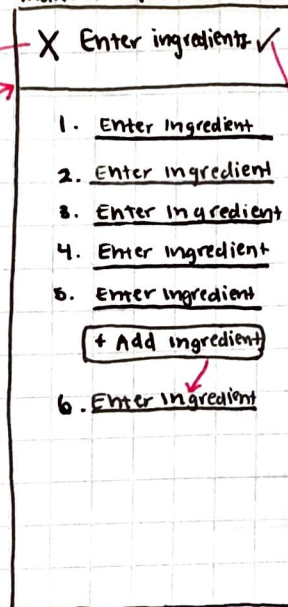 X Enter ingredients ✓
1. Enter Ingredient
2. Enter ingredient
3. Enter Ingredient
4. Enter ingredient
5. Enter ingredient
+ Add ingredient
6. Enter Ingredient